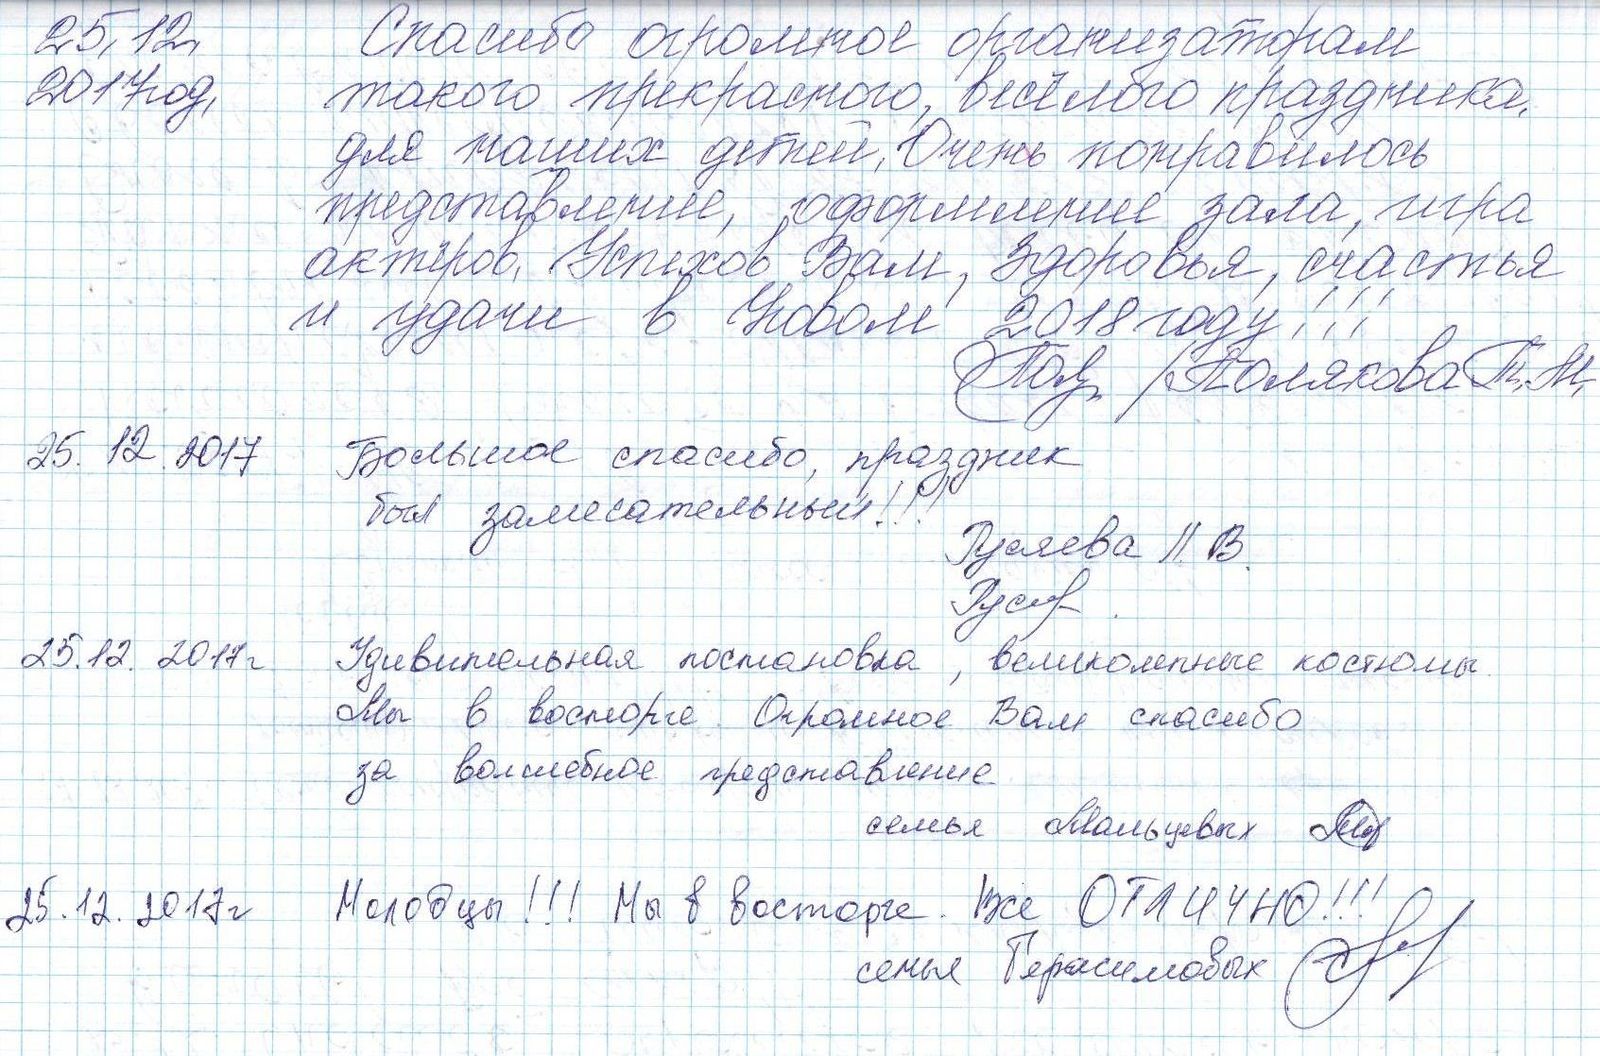 25.12. Спасибо огромное организаторам
2017год. такого прекрасного, весёлого праздника.
для наших детей. Очень понравилось
представление, оформление зала, игра
актёров. Успехов Вам, Здоровья, счастья
и удачи в Новом 2018 году!!!
/Полякова Т.Н.
25.12.2017 Большое спасибо, праздник
был замечательный!!!
Русяева Л. В.
25.12.2017г Удивительная постановка, великолепные костюмы.
Мы в восторге. Огромное Вам спасибо
за волшебное представление
семья Мальцевых
25.12.2017г Молодцы!!! Мы в восторге. Все ОТЛИЧНО!!!
семья Герасимовых